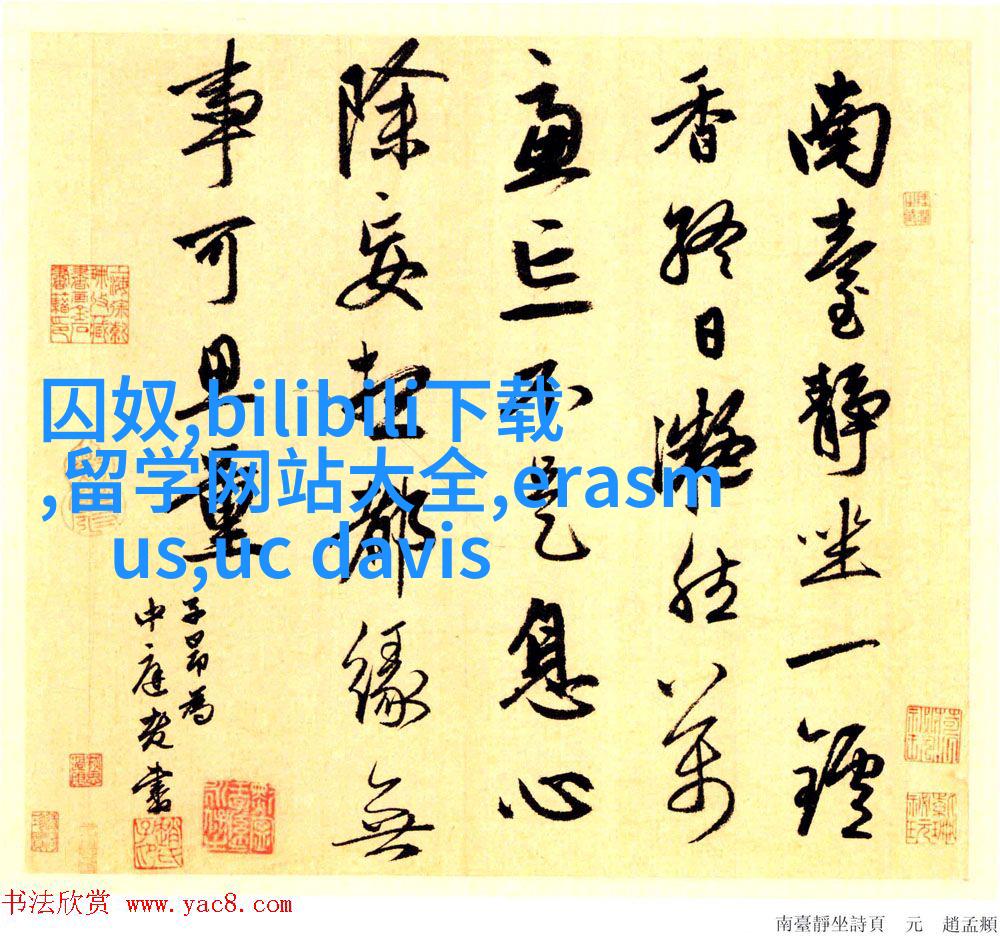 南臺靜坐一鑪
香終日凝然萬
慮亡不是息心
除妄想都緣無
事可思量
子昂為
中庭老書
囚奴,bilibili下载
,留学网站大全,erasm
us,uc davis
书法欣赏 www.yac8.com
南臺靜坐詩頁 元 趙孟頫